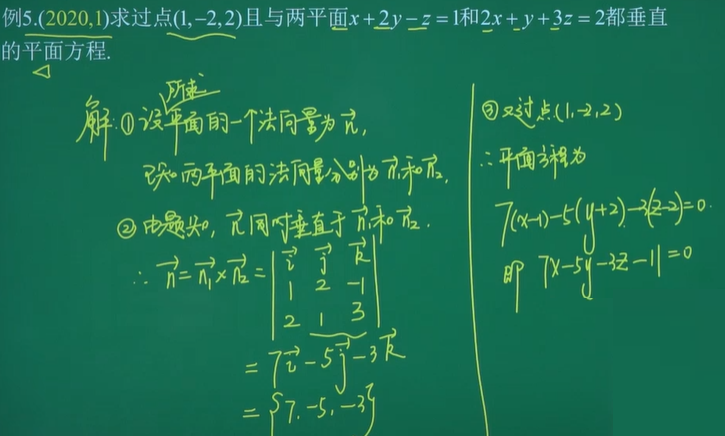 例5.(2020,1)求过点(1,−2,2)且与两平面x+2y−z=1和2x+y+3z=2都垂直
的平面方程.
所求
解:①设平面的一个法向量为n⃗,
已知两平面的法向量分别为n⃗₁和n⃗₂,
②由题知, n⃗同时垂直于n⃗₁和n⃗₂.
∴ n⃗=n⃗₁×n⃗₂= | i⃗ j⃗ k⃗ |
| 1 2 -1 |
| 2 1 3 |
= 7i⃗-5j⃗-3k⃗
= {7,-5,-3}
③又过点(1,-2,2)
∴平面方程为
7(x-1)-5(y+2)-3(z-2)=0.
即 7x-5y-3z-11=0